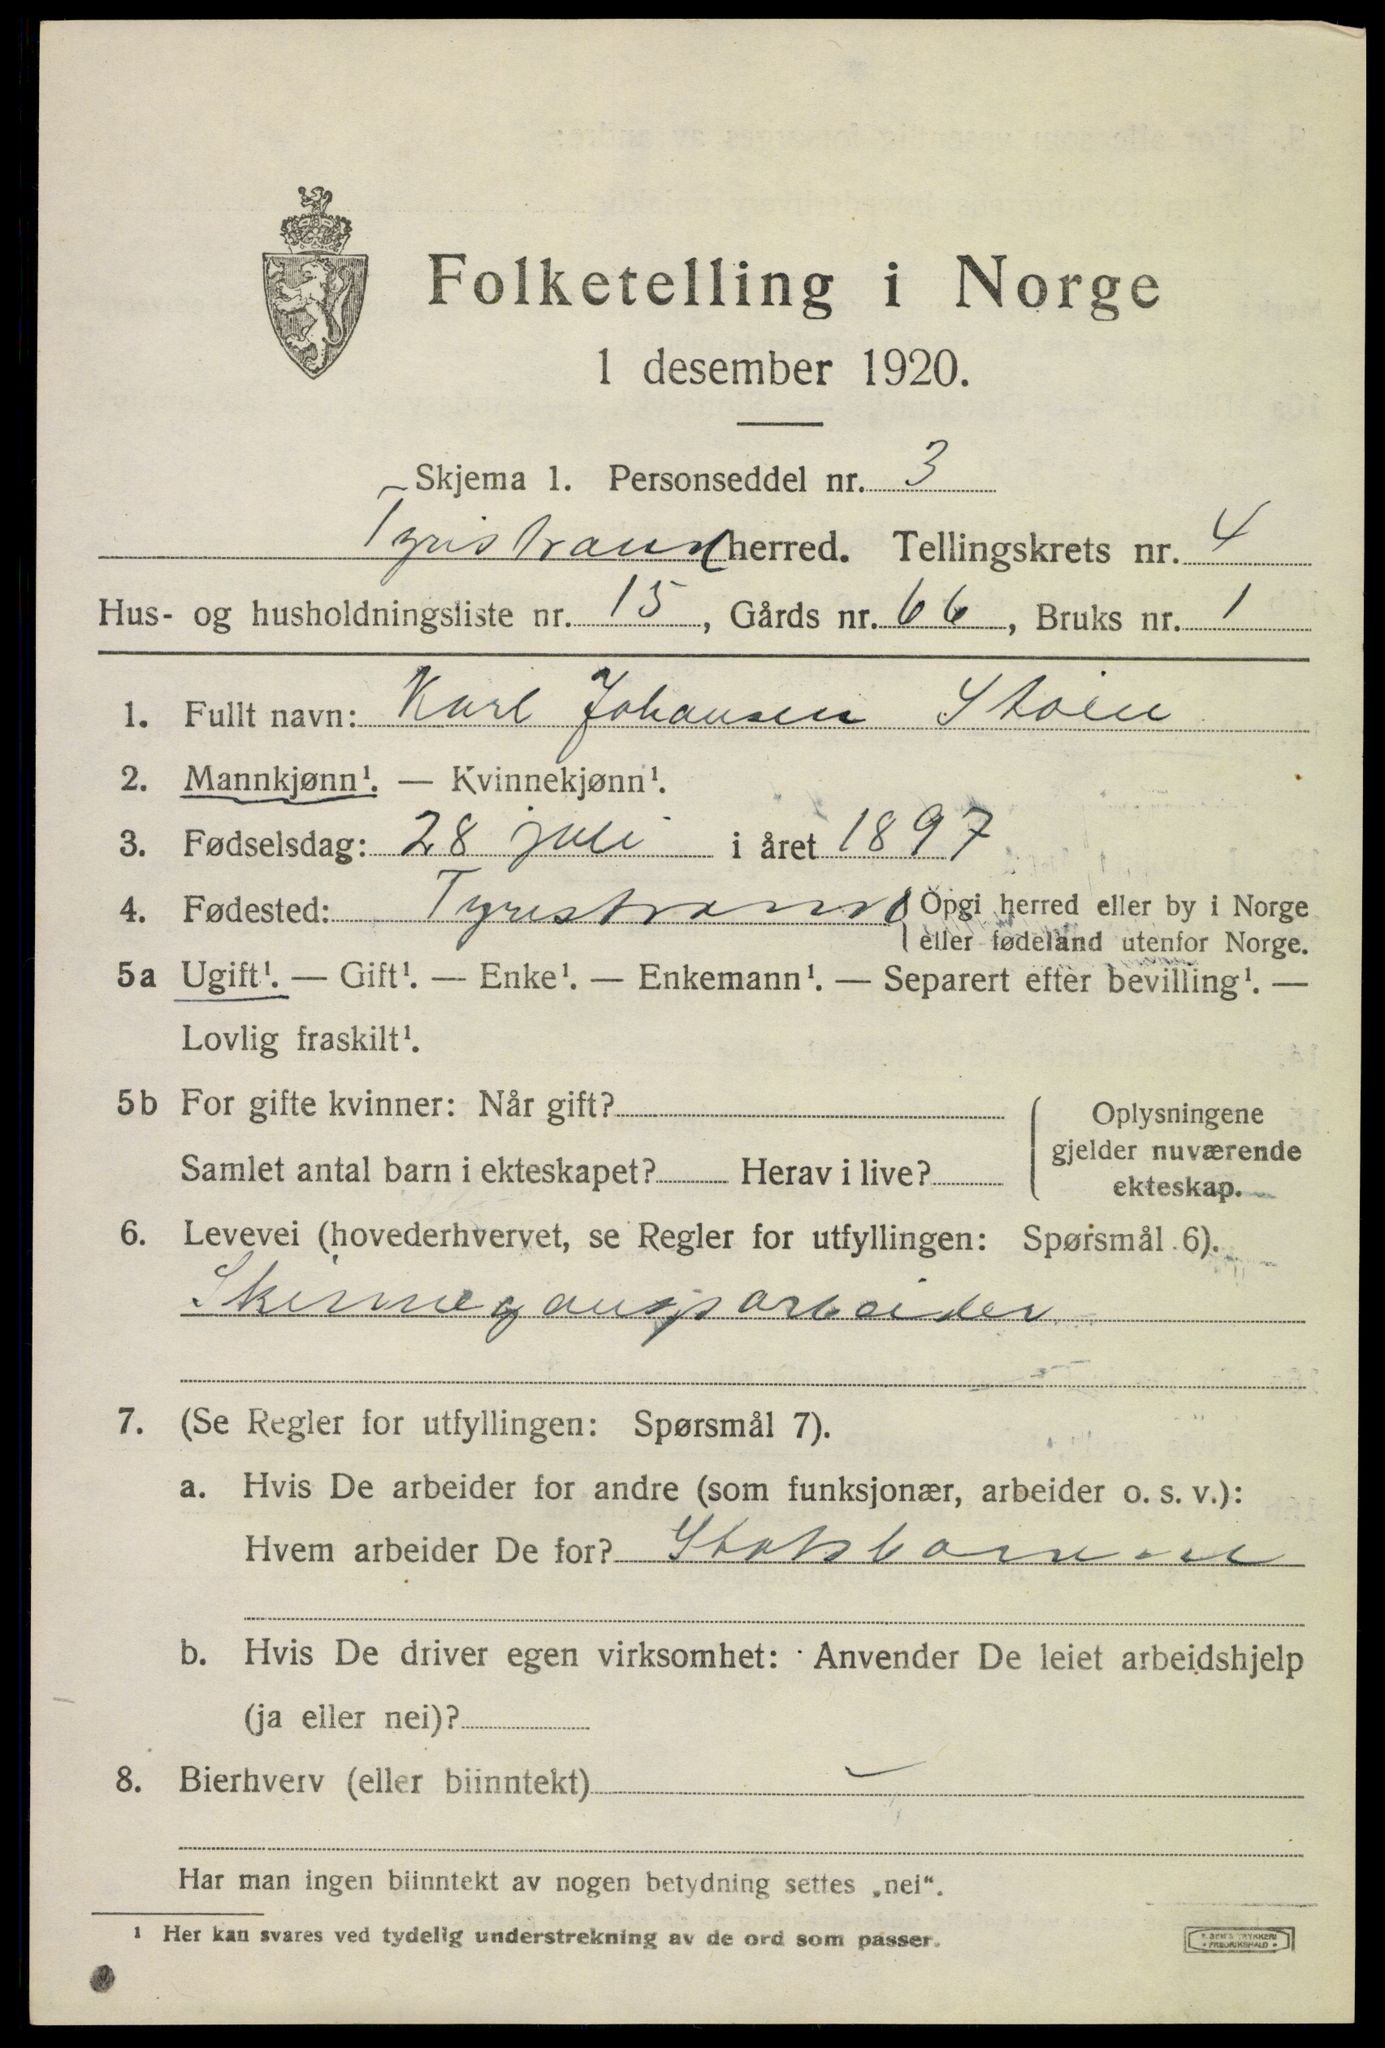 Folketelling i Norge
1 desember 1920.
Skjema 1. Personseddel nr. 3
Tyristrand herred. Tellingskrets nr. 4
Hus- og husholdningsliste nr. 15, Gårds nr. 66, Bruks nr. 1
1. Fullt navn: Karl Johansen Stöen
2. Mannkjønn¹. — Kvinnekjønn¹.
3. Fødselsdag: 28 juli i året 1897
4. Fødested: Tyristrand { Opgi herred eller by i Norge
eller fødeland utenfor Norge.
5a Ugift¹. — Gift¹. — Enke¹. — Enkemann¹. — Separert efter bevilling¹. —
Lovlig fraskilt¹.
5b For gifte kvinner: Når gift?
Samlet antal barn i ekteskapet? Herav i live?
Oplysningene
gjelder nuværende
ekteskap.
6. Levevei (hovederhvervet, se Regler for utfyllingen: Spørsmål 6).
Skinnegangsarbeider
7. (Se Regler for utfyllingen: Spørsmål 7).
a. Hvis De arbeider for andre (som funksjonær, arbeider o. s. v.):
Hvem arbeider De for? Statsbanene
b. Hvis De driver egen virksomhet: Anvender De leiet arbeidshjelp
(ja eller nei)?
8. Bierhverv (eller biinntekt) –
Har man ingen biinntekt av nogen betydning settes „nei“.
¹ Her kan svares ved tydelig understrekning av de ord som passer.
FREDRIKSHALD